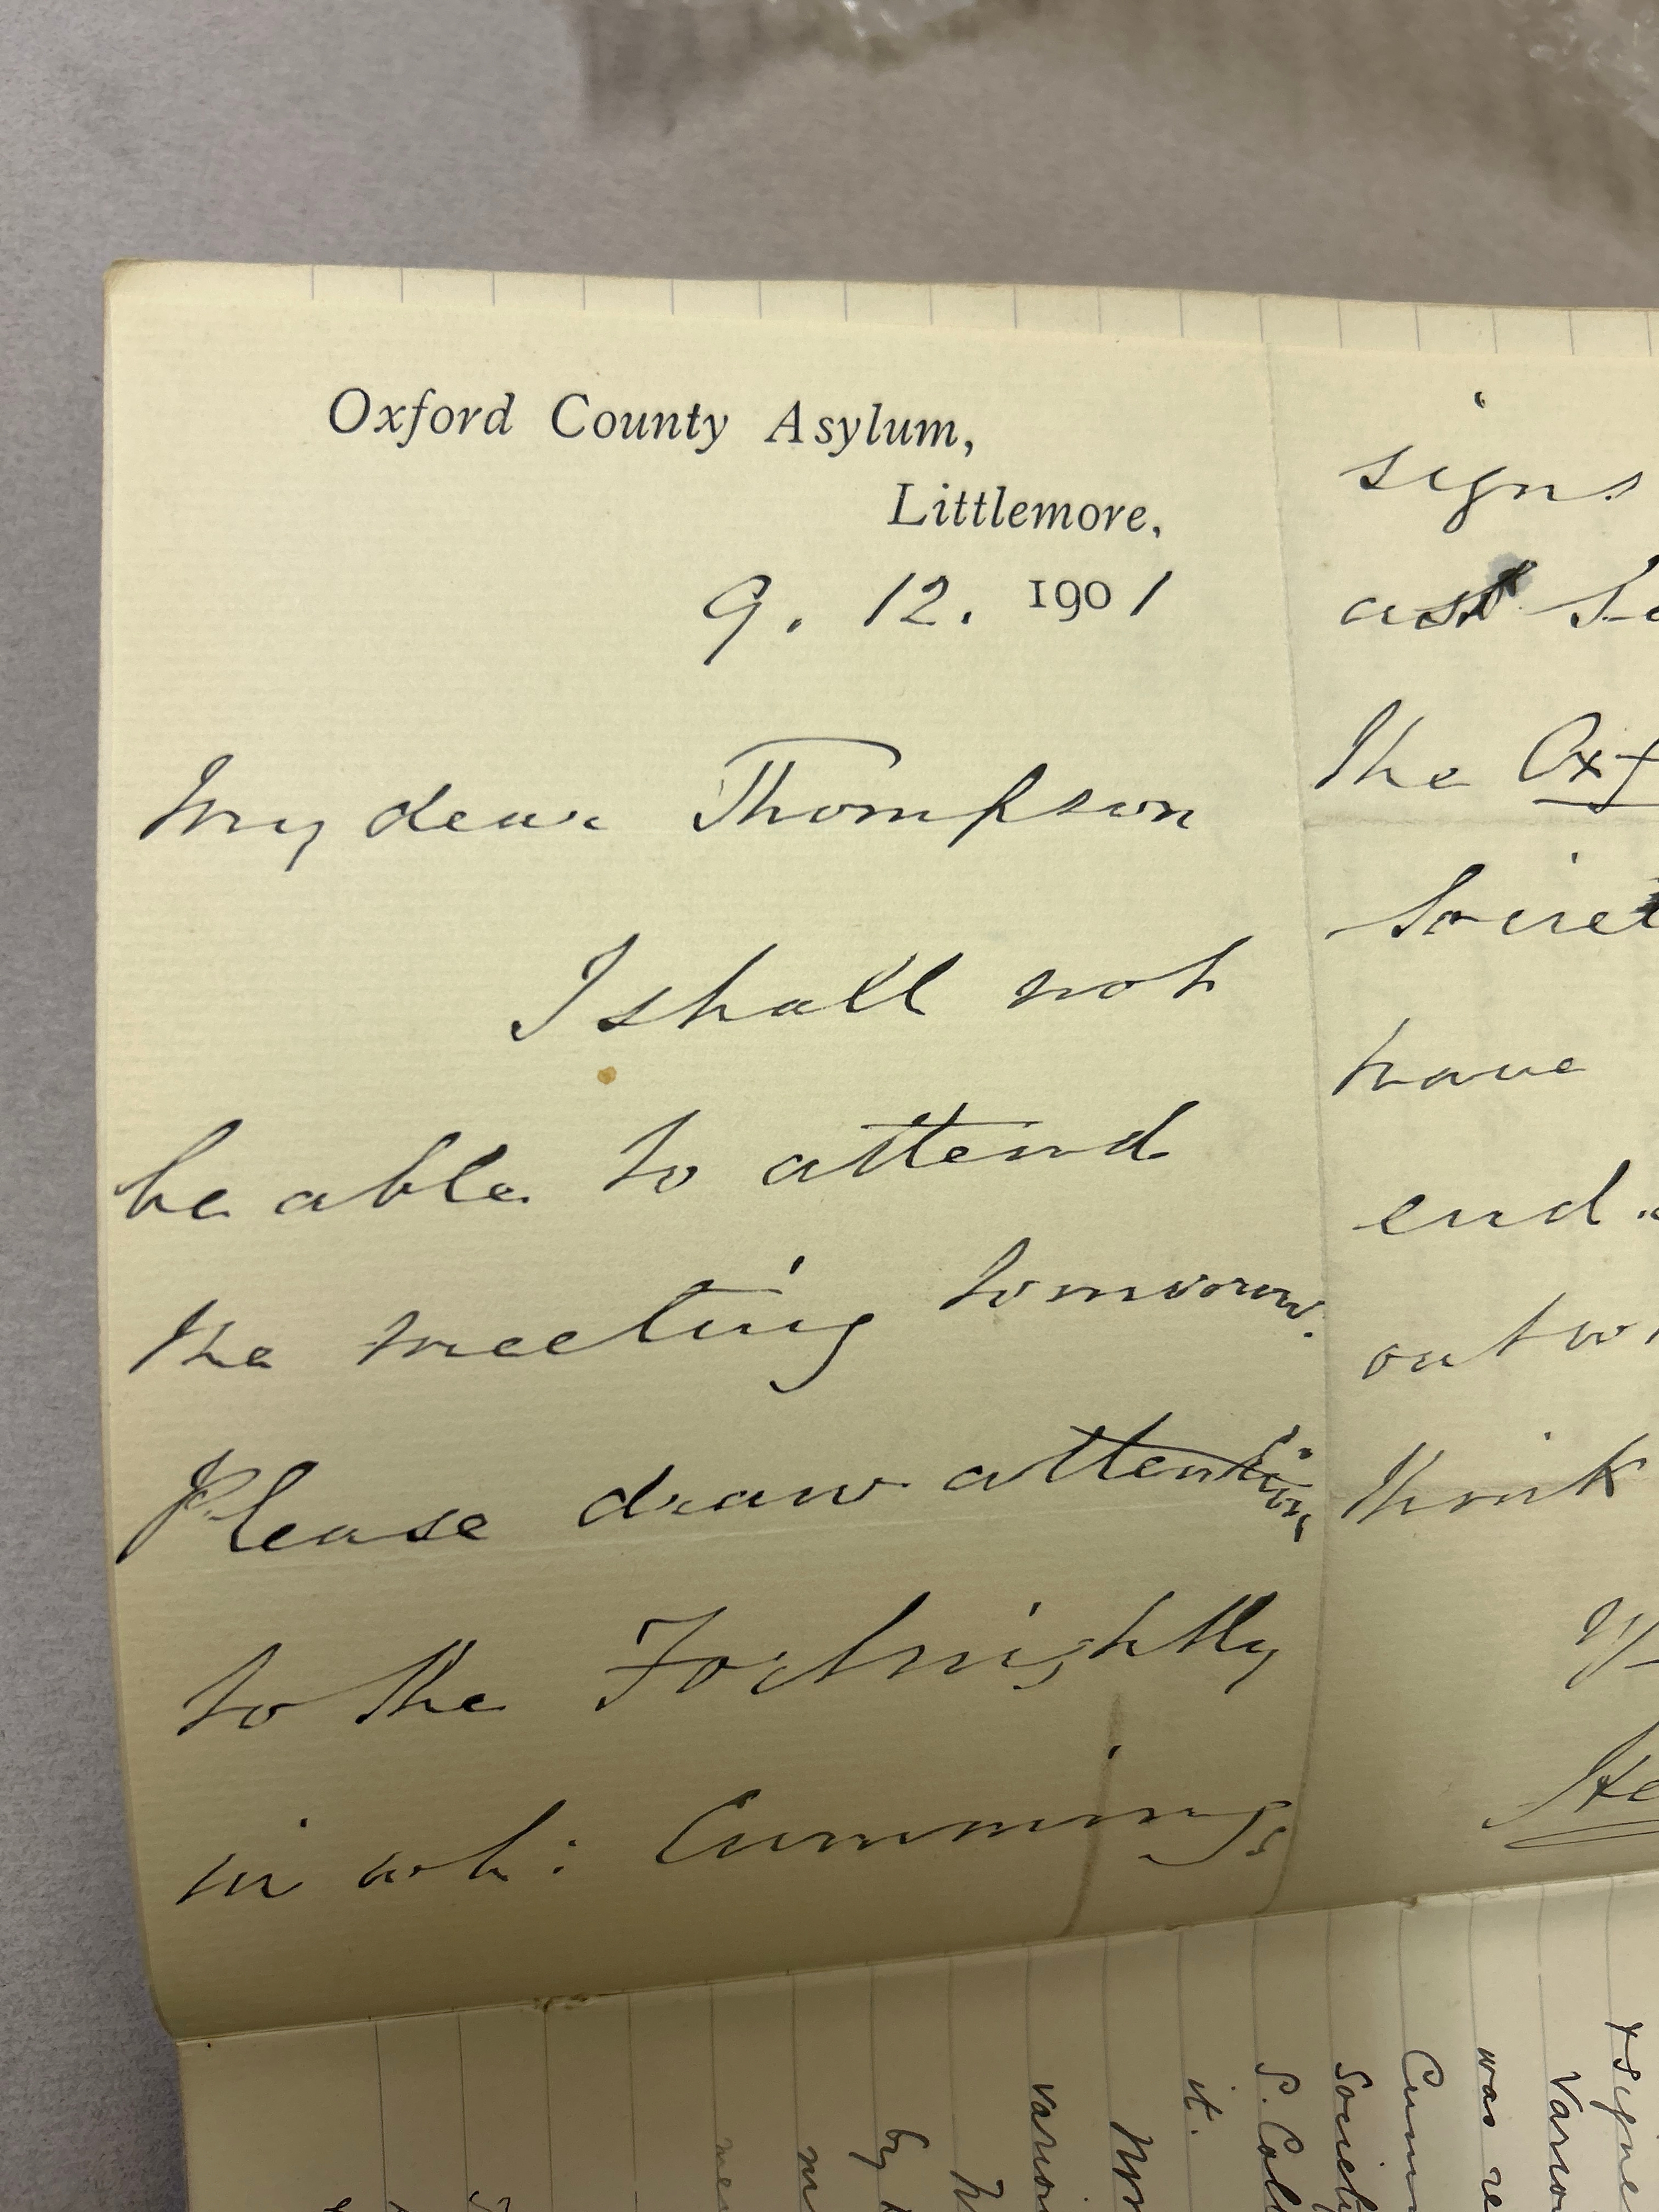 Oxford County Asylum,
Littlemore,
9. 12. 1901
My dear Thompson
I shall not
be able to attend
the meeting tomorrow.
Please draw attention
to the Fortnightly
in wh: Cummings
signs
as
the Oxf
Societ
have
end
out
think
He
signe
was re
Cumm
Society
S.
it.
by